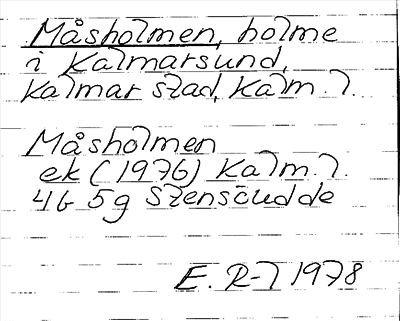 Måsholmen, holme
i Kalmarsund,
Kalmar stad, Kalm. l.
Måsholmen
ek (1976) Kalm. l.
4G 5g Stensudde
E. R-l 1978